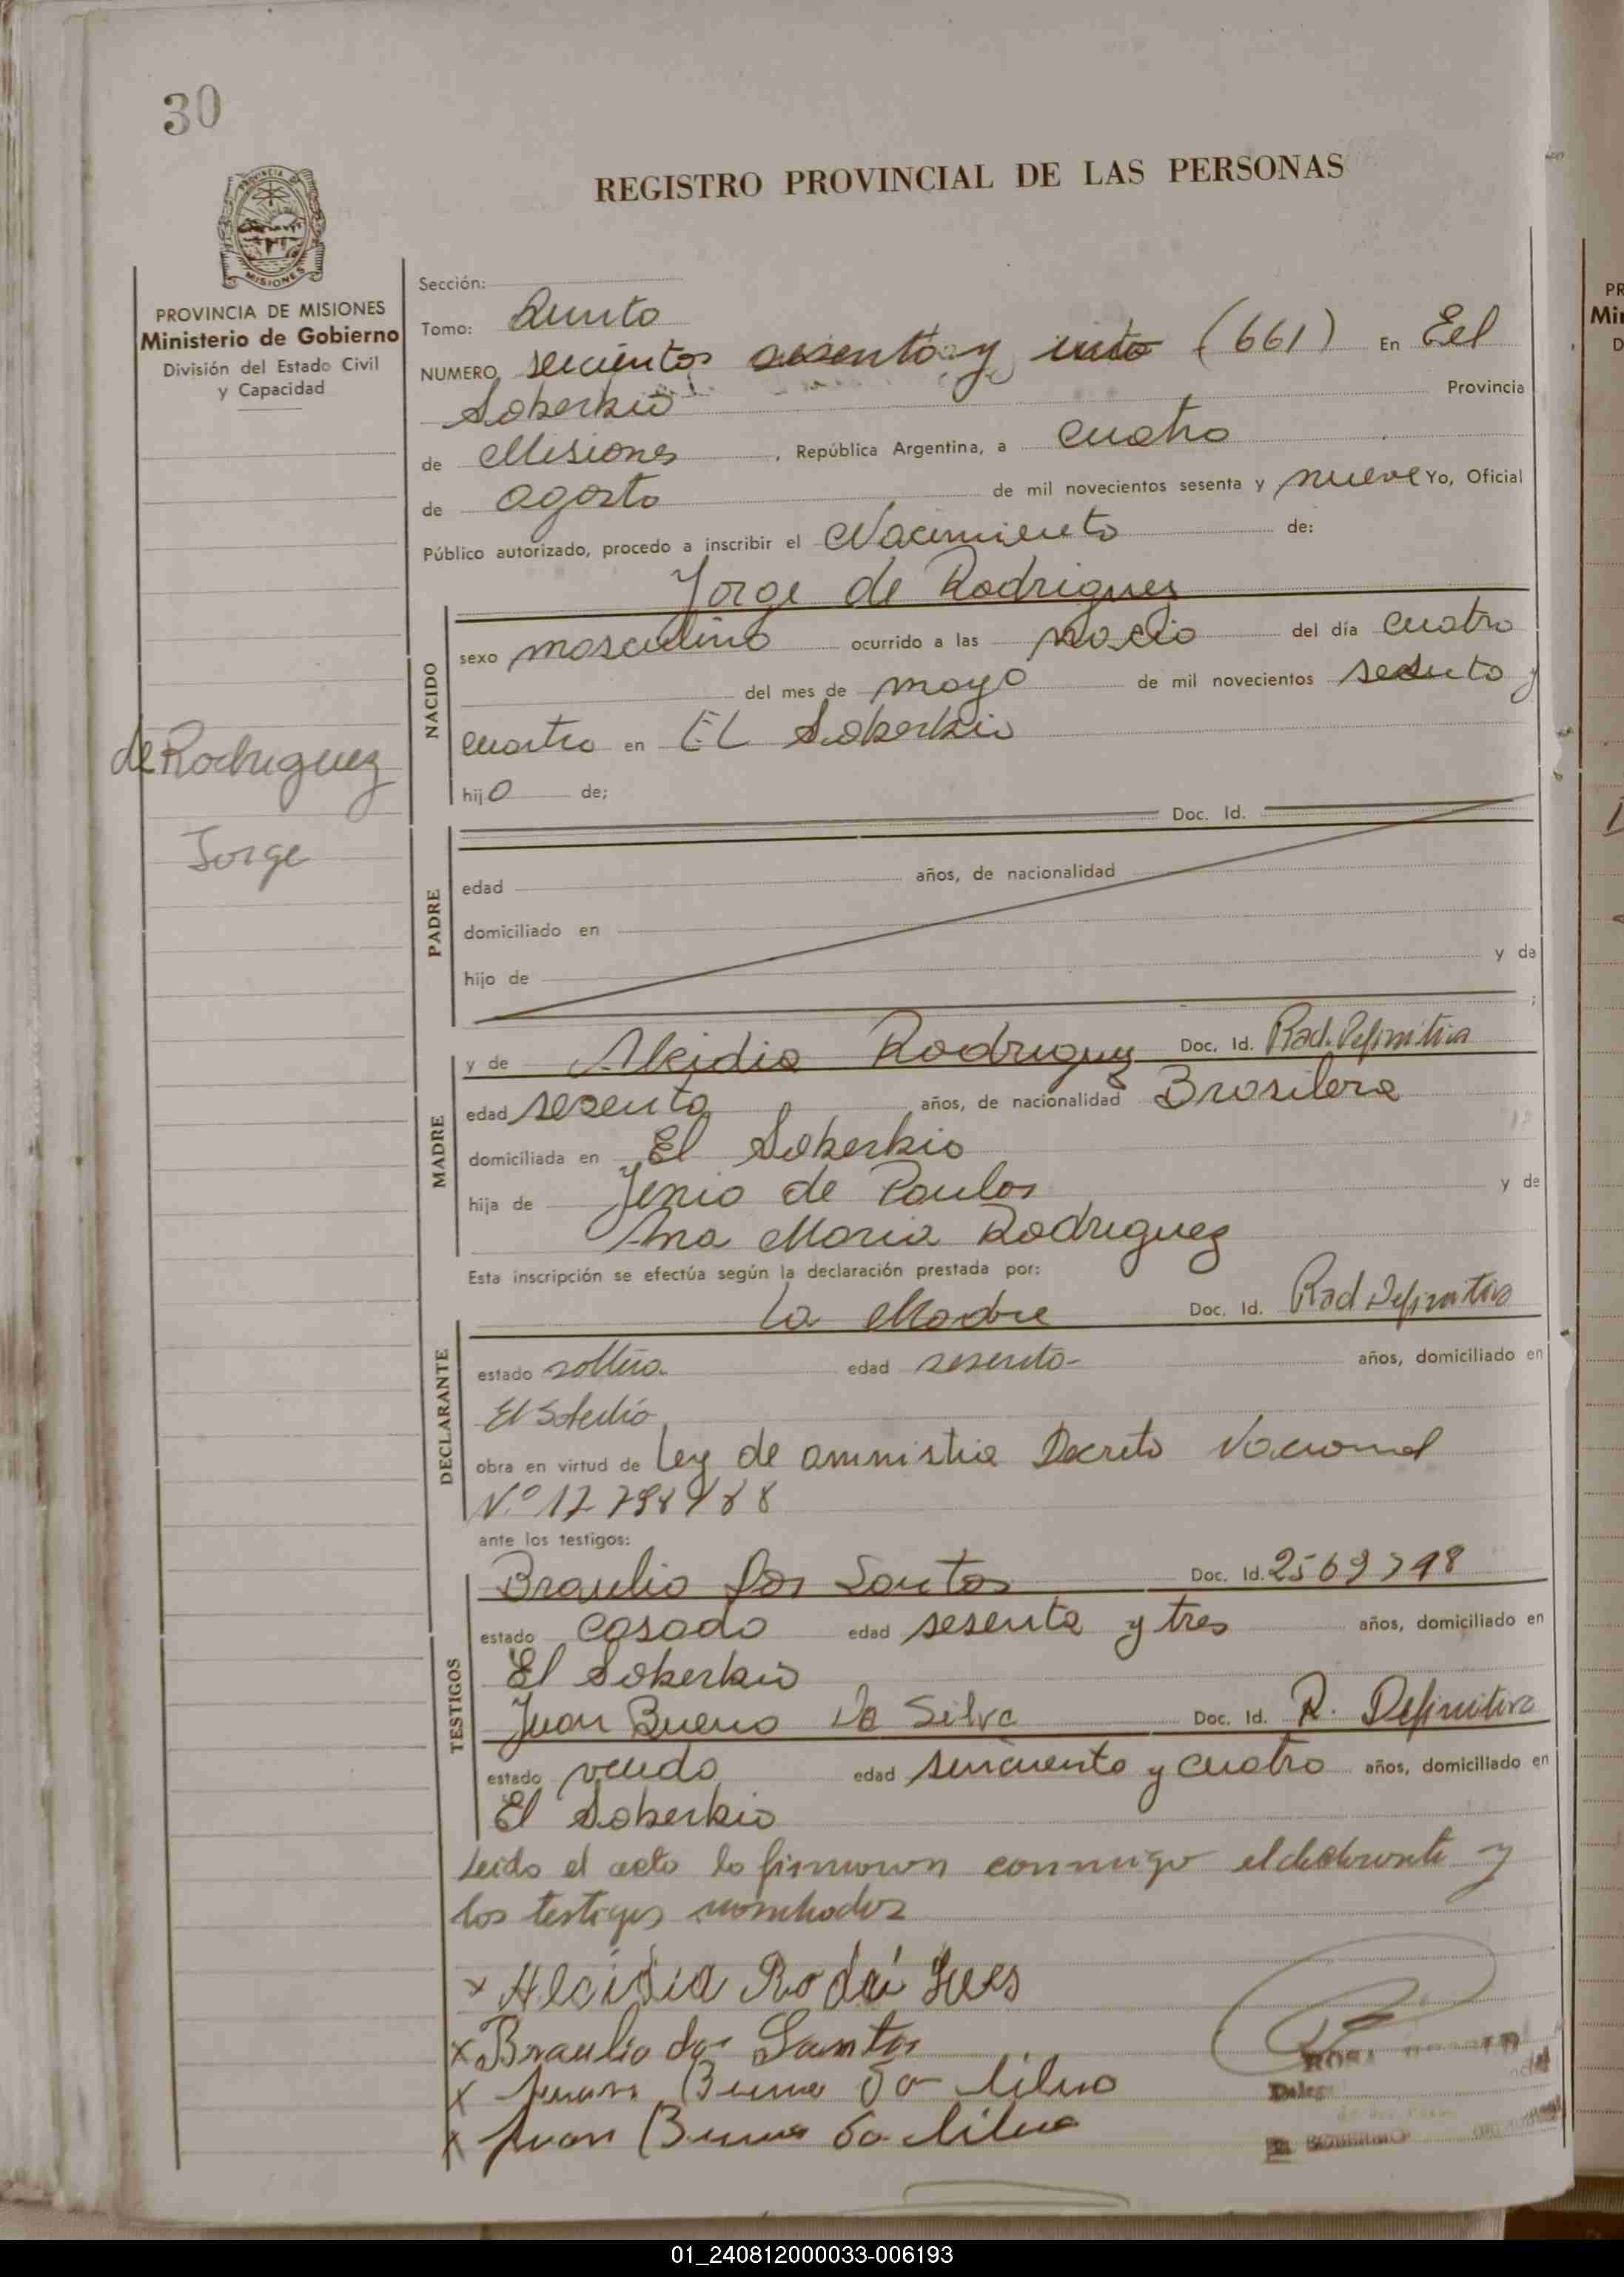 30
REGISTRO PROVINCIAL DE LAS PERSONAS
PROVINCIA DE MISIONES
MISIONES
PROVINCIA DE MISIONES
Ministerio de Gobierno
División del Estado Civil
y Capacidad
Sección:
Tomo: Quinto
NUMERO seicientos sesenta y uno (661) En Eel
Soberbio Provincia
de Misiones, República Argentina, a cuatro
de agosto de mil novecientos sesenta y nueve Yo, Oficial
Público autorizado, procedo a inscribir el Nacimiento de:
Jorge de Rodriguez
NACIDO
sexo masculino ocurrido a las del día cuatro
del mes de mayo de mil novecientos sesenta y
cuatro en EL Soberbio
hijo de;
de Rodriguez
Jorge
PADRE
Doc. Id.
edad años, de nacionalidad
domiciliado en
hijo de y de
;
MADRE
y de Alcidia Rodriguez Doc. Id. Rad. Definitiva
edad sesenta años, de nacionalidad Brasilera
domiciliada en El Soberbio
hija de Jenio de Paulos y de
Ana Maria Rodriguez
Esta inscripción se efectúa según la declaración prestada por:
DECLARANTE
La Madre Doc. Id. Rad Definitiva
estado soltera edad sesenta - años, domiciliado en
El Soberbio
obra en virtud de Ley de amnistia Decreto Nacional
N.º 17.798/68
ante los testigos:
TESTIGOS
Braulio Dos Santos Doc. Id. 2569798
estado casado edad sesenta y tres años, domiciliado en
El Soberbio
Juan Bueno Da Silva Doc. Id. R. Definitiva
estado veudo edad sincuenta y cuatro años, domiciliado en
El Soberbio
Leido el acta la firmaron conmigo el declarante y
los testigos nombrados
x Alcidia Rodrigues
x Braulio dos Santos
x Juan Bueno da Silva
x Juan Bueno da Silva
ROSA
Deleg
01_240812000033-006193